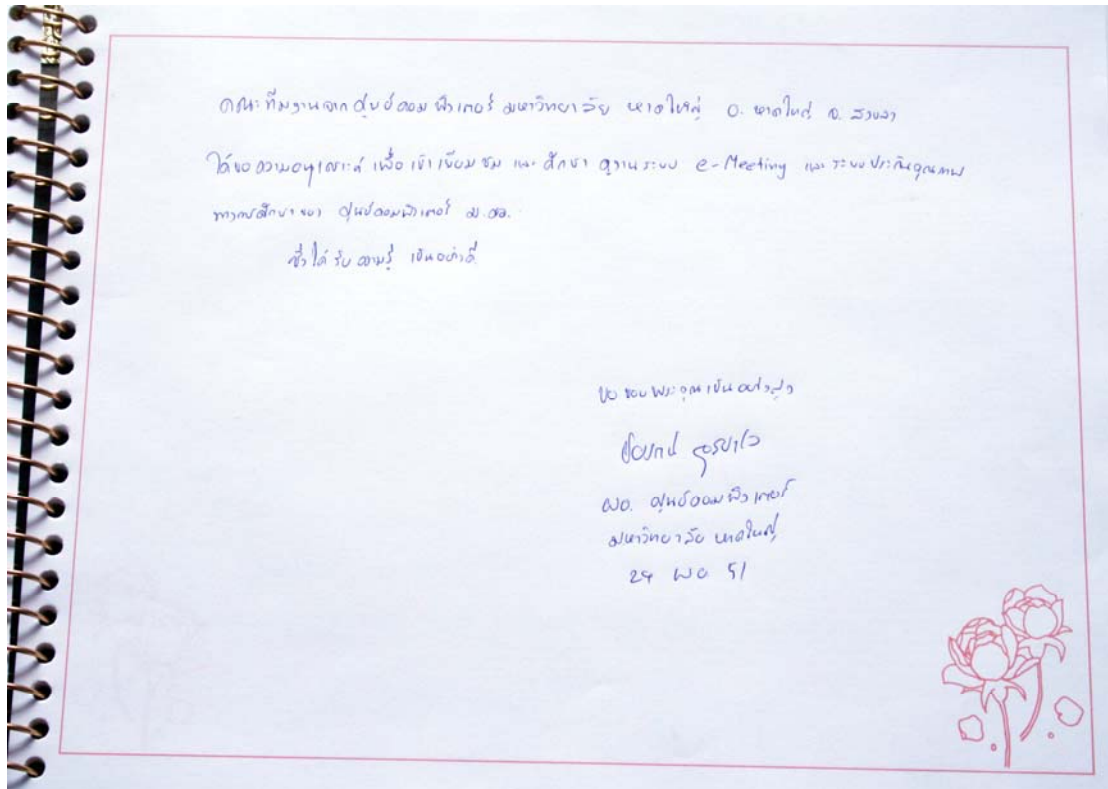 คณะทีมงานจากศูนย์คอมพิวเตอร์ มหาวิทยาลัย หาดใหญ่ อ. หาดใหญ่ จ. สงขลา
ได้ขอความอนุเคราะห์ เพื่อเข้าเยี่ยมชม และศึกษา ดูงานระบบ e-Meeting และระบบประกันคุณภาพ
ทางการศึกษา ของ ศูนย์คอมพิวเตอร์ ม.อ.
ซึ่งได้รับความรู้ เป็นอย่างดี
ขอขอบพระคุณเป็นอย่างสูง
ผอ. ศูนย์คอมพิวเตอร์
มหาวิทยาลัย หาดใหญ่
พย 51